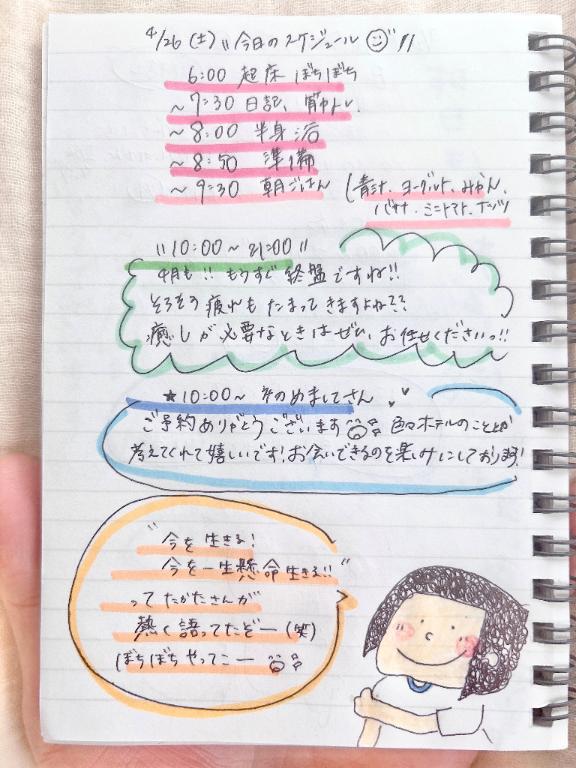 4/26(土)"今日のスケジュール"
6:00 起床 ぼちぼち
~7:30 日記、筋トレ、
~8:00 半身浴
~8:50 準備
~9:30 朝ごはん (青汁、ヨーグルト、みかん、
バナナ、ミニトマト、ナッツ)
"10:00~21:00"
4月も!!もうすぐ終盤ですね!!
そろそろ疲れもたまってきますよね??
癒しが必要なときはぜひ、お任せくださいっ!!
★10:00~ はじめましてさん
ご予約ありがとうございます 色々ホテルのこととか
考えてくれて嬉しいです!お会いできるのを楽しみにしております!
"今を生きる!
今を一生懸命生きる!!"
ってたかたさんが
熱く語ってたぞー(笑)
ぼちぼちやってこー